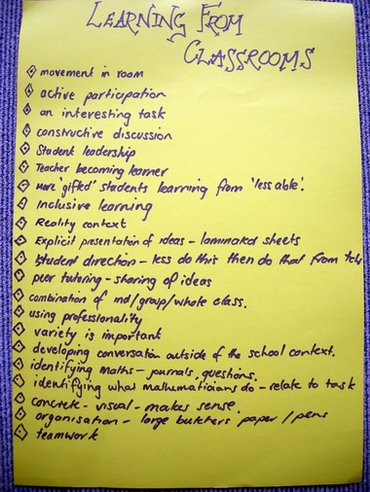 LEARNING FROM
CLASSROOMS
movement in room
active participation
an interesting task
constructive discussion
Student leadership
Teacher becoming learner
More 'gifted' students learning from 'less able'.
Inclusive learning
Reality context
Explicit presentation of ideas - laminated sheets
Student direction - less do this then do that from tchr
peer tutoring - sharing of ideas
combination of ind/group/whole class.
using professionality
variety is important
developing conversation outside of the school context.
identifying maths - journals, questions.
identifying what mathematicians do - relate to task
concrete - visual - makes sense.
organisation - large butchers paper / pens
teamwork